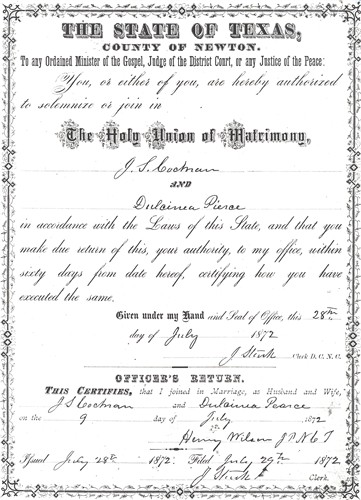 THE STATE OF TEXAS,
COUNTY OF NEWTON.
To any Ordained Minister of the Gospel, Judge of the District Court, or any Justice of the Peace:
You, or either of you, are hereby authorized
to solemnize or join in
The Holy Union of Matrimony,
J. S. Cochran
AND
Dulcinea Pierce
in accordance with the Laws of this State, and that you
make due return of this, your authority, to my office, within
sixty days from date hereof, certifying how you have
executed the same.
Given under my Hand and Seal of Office, this 28th
day of July 1872
J Stark Clerk D. C. N. C.
OFFICER'S RETURN.
THIS CERTIFIES, that I joined in Marriage, as Husband and Wife,
J S Cochran and Dulcinea Pearce
on the 9 day of July 1872
Henry Wilson J P N C T
Issued July 28th 1872. Filed July 29th 1872
J Stark Clerk.